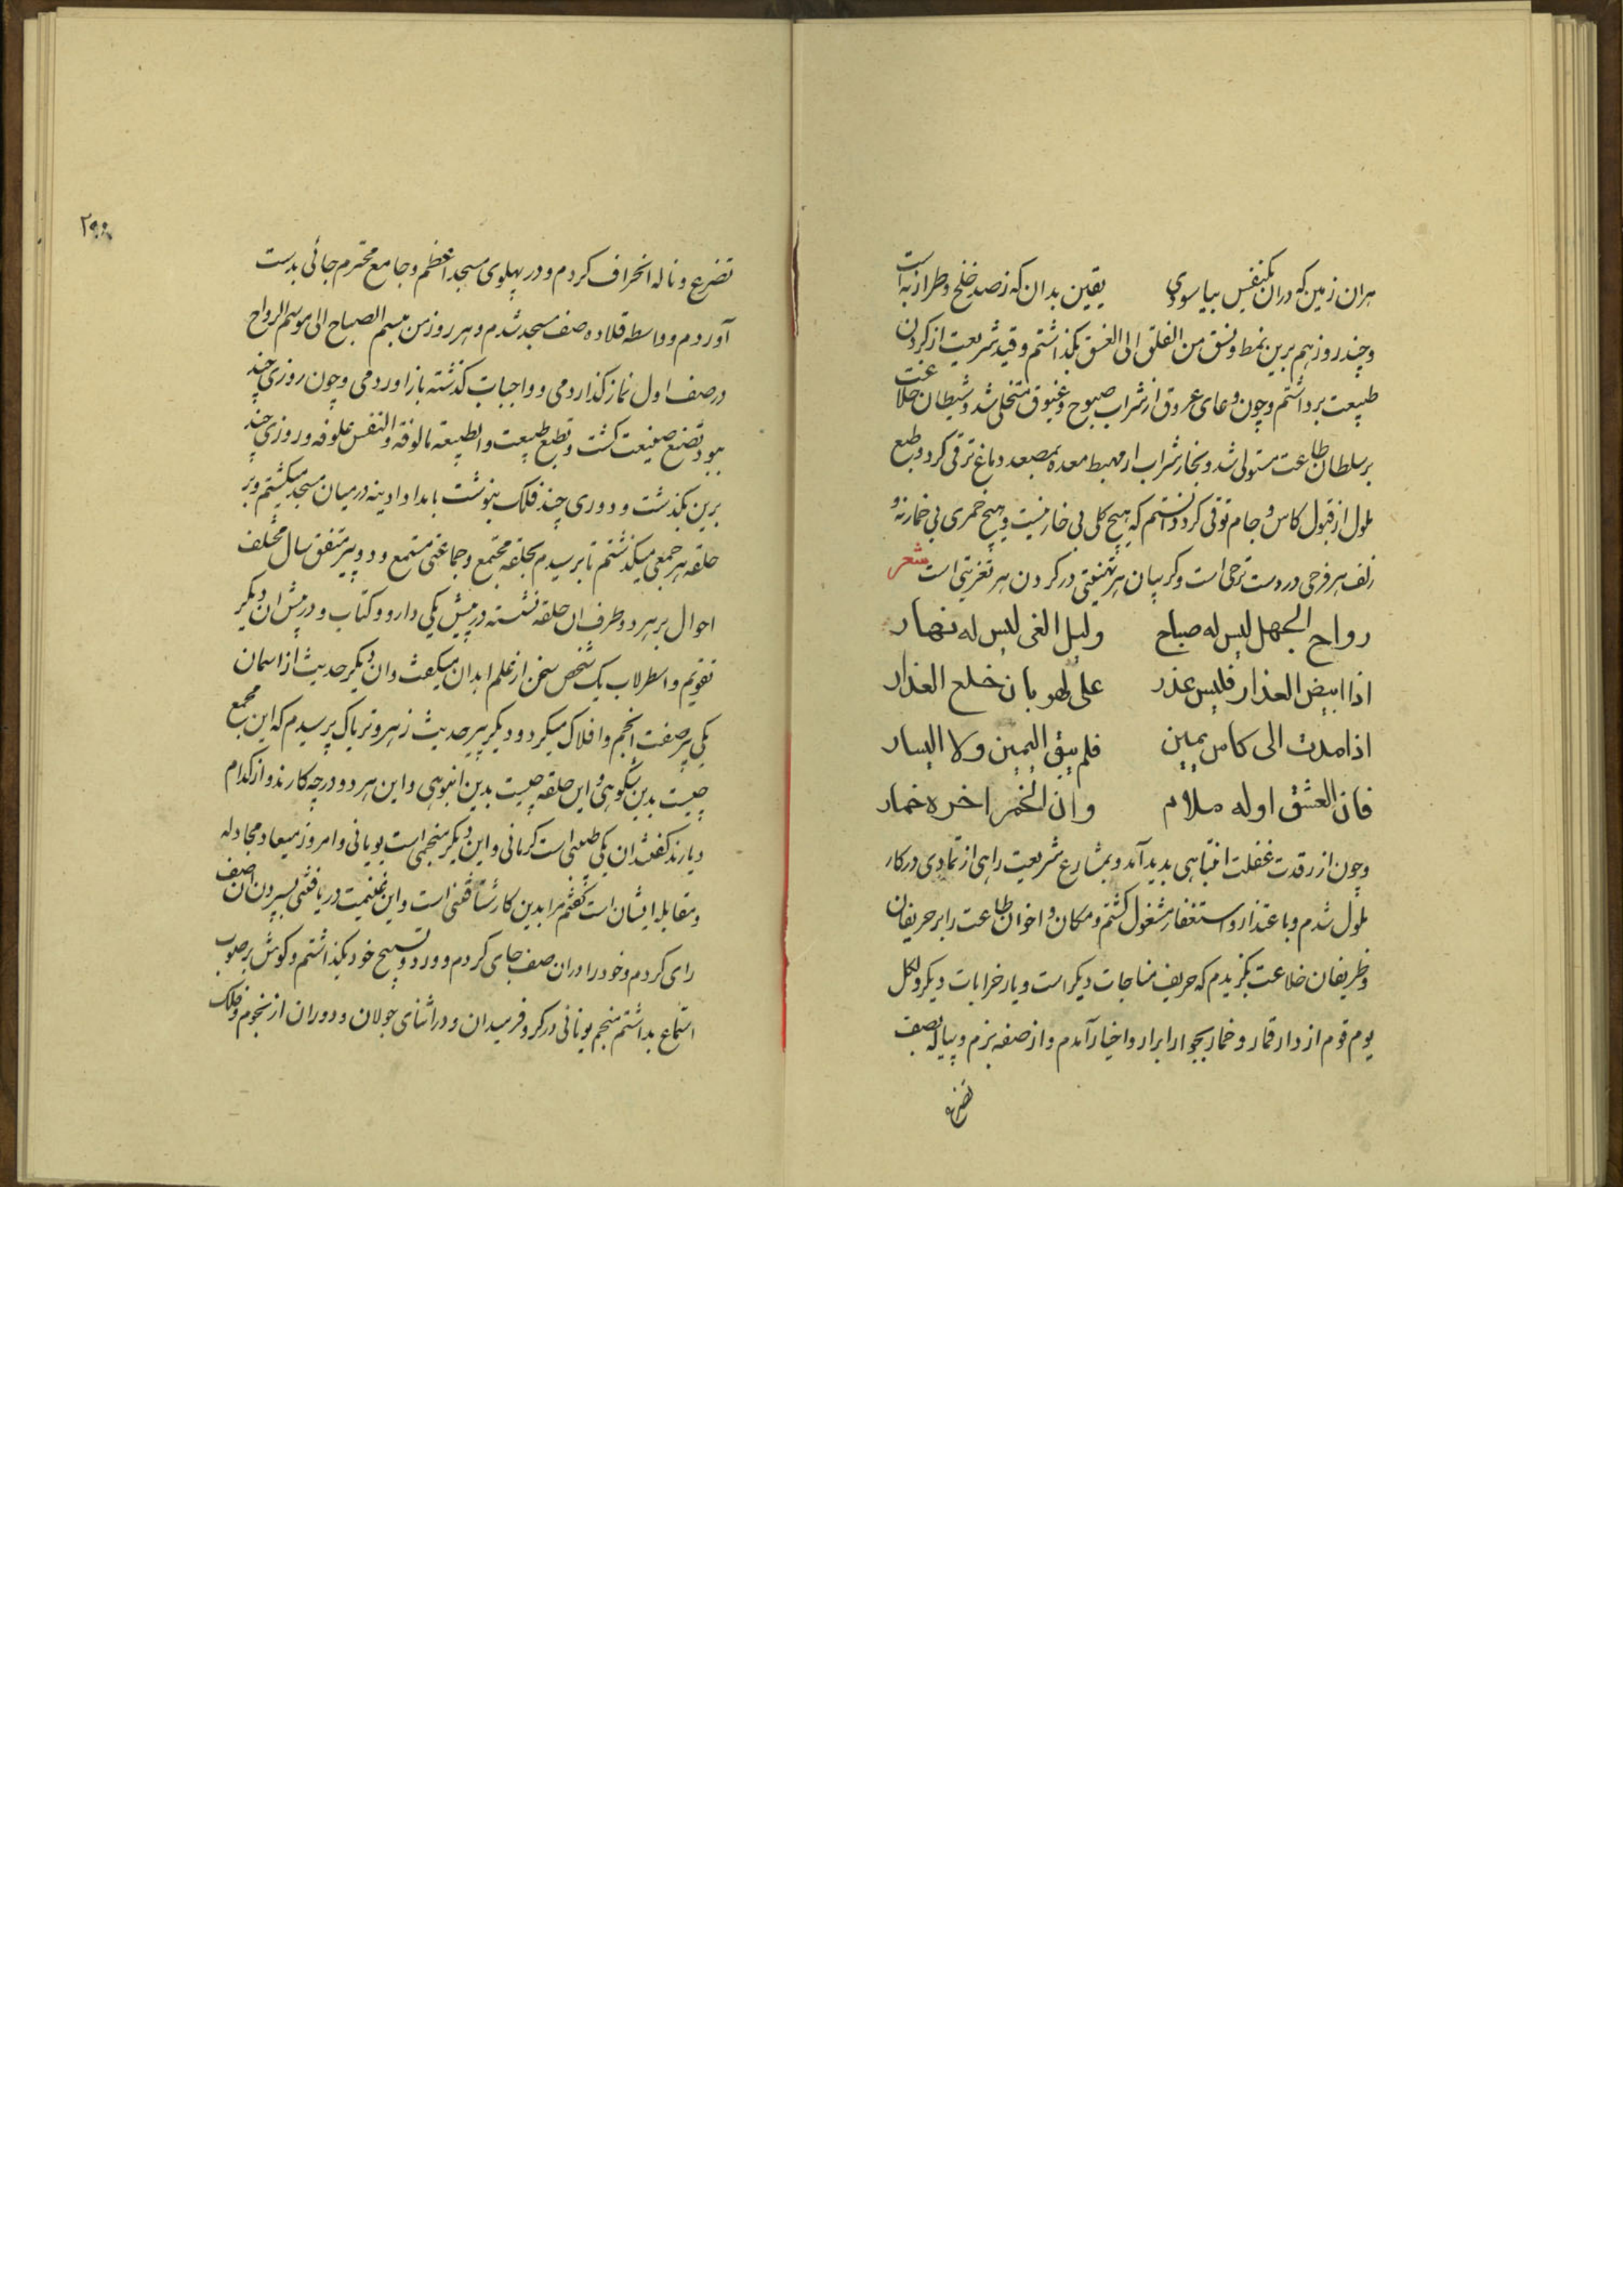 هران زمین که دران یکنفس بیاسودی یقین بدان که زصد خلخ وطراز به است
وچند روز هم برین نمط ونسق من الفلق الی الغسق بگذاشتم وقید شریعت از گردن
طبیعت برداشتم وچون وعای عروق از شراب صبوح وغبوق ممتلی شد وشیطان خلاعت
بر سلطان طاعت مستولی شد وبخار شراب از مهبط معده بمصعد دماغ ترقی کرد وطبع
ملول از قبول کاس وجام توقی کرد دانستم که هیچ کلی بی خار نیست وهیچ خمری بی خمار نه و
زلف هر فرحی در دست ترحی است وکریبان هر تهنیتی در کردن هر تعزیتی است شعر
رواح الجهل لیس له صباح ولیل الغی لیس له نهار
اذا ابیض العذار فلیس عذر علی لهو بان خلع العذار
اذا مدت الی کاس یمین فلم یبق الیمین ولا الیسار
فان العشق اوله ملام وان الخمر اخره خمار
وچون از رقدت غفلت انتباهی بدید آمد وبمشارع شریعت راهی از تمادی در کار
ملول شدم وباعتذار واستغفار مشغول کشتم ومکان واخوان طاعت را بر حریفان
وظریفان خلاعت بگزیدم که حریف مناجات دیکر است ویار خرابات دیکر ولکل
یوم قوم از دار قمار وخمار بجوار ابرار واخیار آمدم واز صفه بزم وپیاله بصف
تضرع
تضرع وناله انحراف کردم ودر پهلوی مسجد اعظم وجامع محترم جائی بدست
آوردم وواسطه قلاده صف مسجد شدم وهر روز من مبسم الصباح الی موسم الرواح
در صف اول نماز کذاردمی وواجبات کذشته باز اوردمی وچون روزی چند
ببود تصنع صنیعت کشت وتطبع طبیعت والطبیعة مالوفة والنفس علوفة وروزی چند
برین بگذشت ودوری چند فلک بنوشت بامداد ادینه درمیان مسجد میکشتم وبر
حلقه هر جمعی میکذشتم تا برسیدم بحلقه مجتمع وجماعتی مستمع ودو پیر متفق سال مختلف
احوال بر هر دو طرف ان حلقه نشسته در پیش یکی دارو وکتاب ودر پیش ان دیکر
تقویم واسطرلاب یک شخص سخن از علم ابدان میکفت وان دیکر حدیث از اسمان
یکی پیر صفت انجم وافلاک میکرد ودیکر پیر حدیث زهر وتریاک پرسیدم که این مجمع
چیست بدین شکوهی واین حلقه چیست بدین انبوهی واین هر دو در چه کارند واز کدام
دیارند کفتند ان یکی طبیبی است کرمانی واین دیکر منجمی است یونانی وامروز میعاد مجادله
ومقابله ایشان است کفتم مرا بدین کار شتافتنی است واین غنیمت دریافتنی بسپردن ان صف
رای کردم وخود را دران صف جای کردم وورد وتسبیح خود بگذاشتم وکوش بر صوب
استماع بداشتم منجم یونانی در کر وفر میدان ودر اثنای جولان ودوران از نجوم وفلک